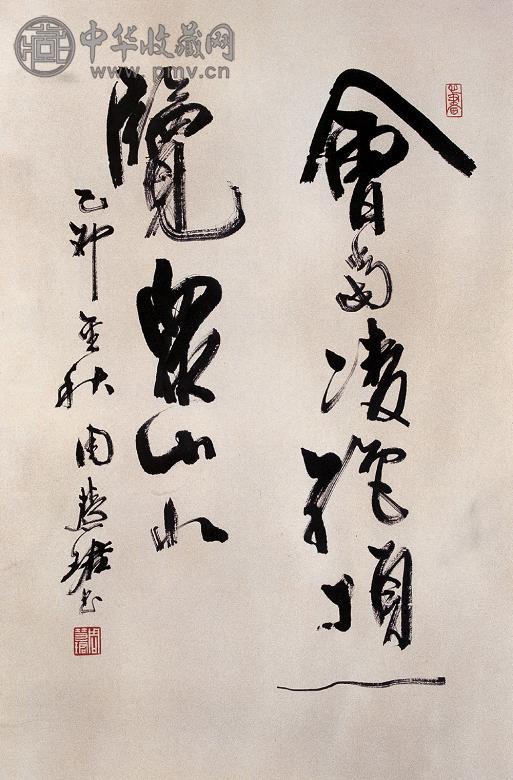 中华收藏网
www.pmv.cn
會當凌絕頂一
覽眾山小
乙卯金秋周慧珺书